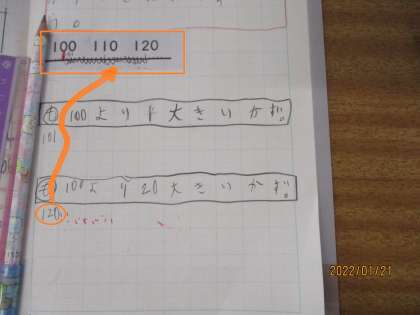 100 110 120
も 100より1大きいかず。
101
も 100より20大きいかず。
120
2022/01/21